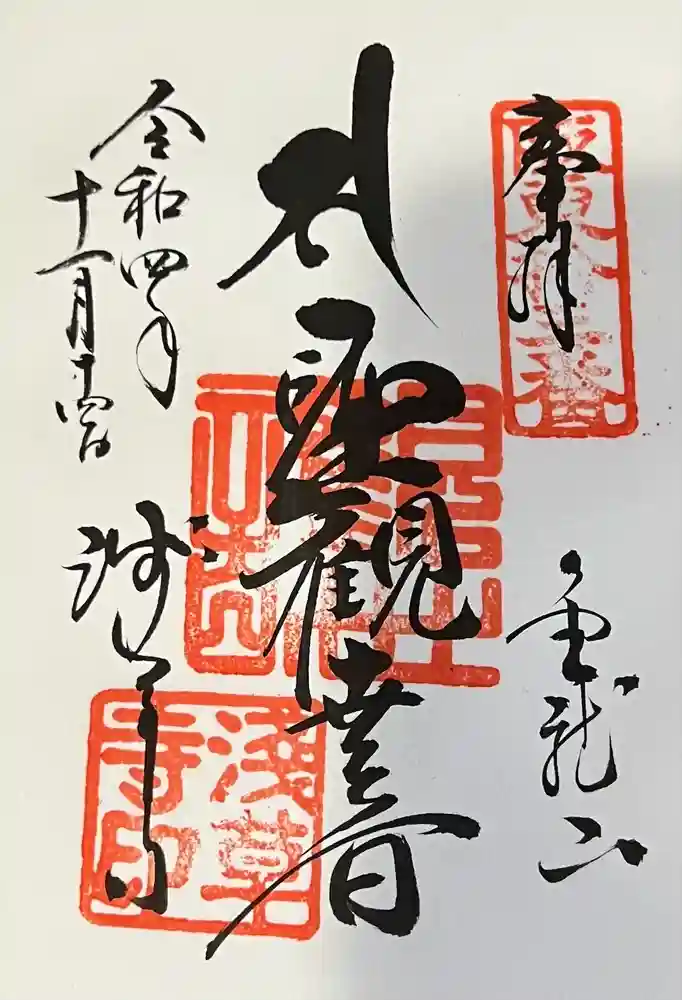 奉拝
坂東十三番
金龍山
聖観世音
令和四年
十一月十四日
浅草寺
浅草
寺印